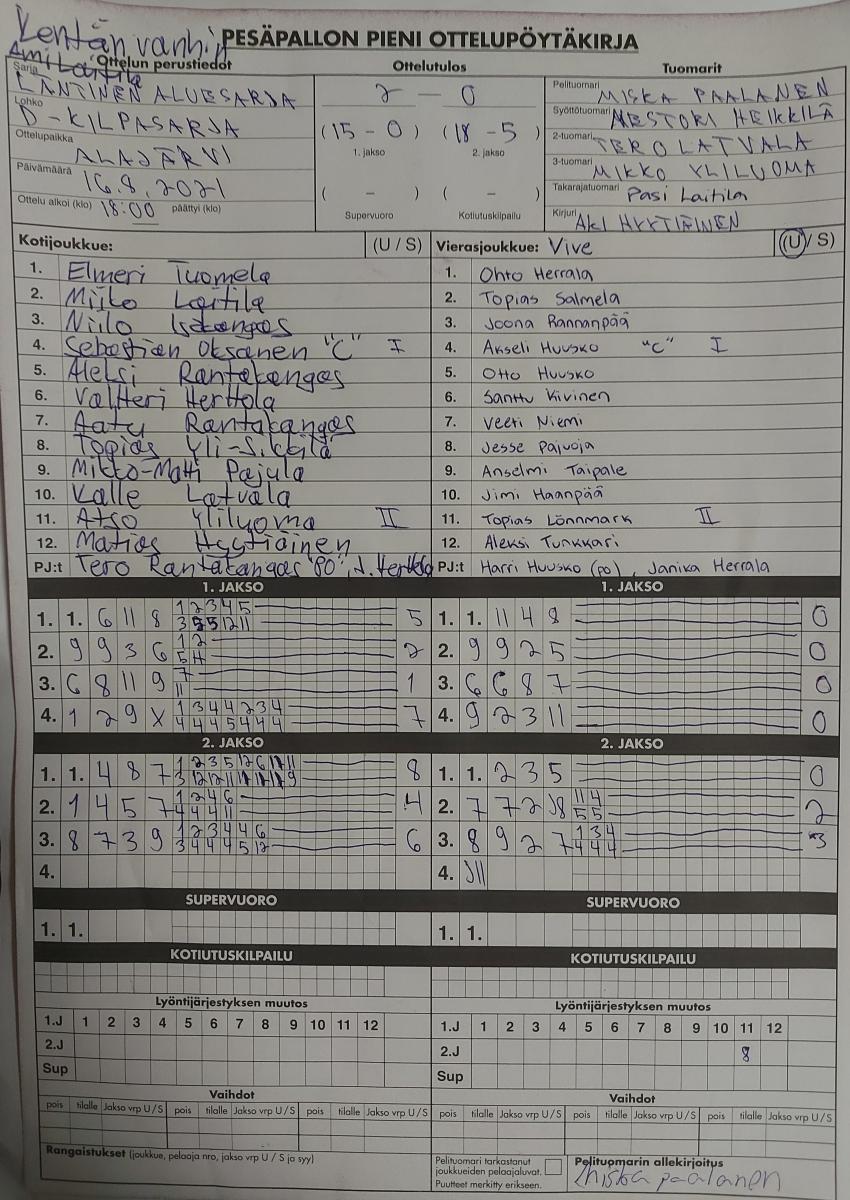 Kentän vanhin
Ami Laitila
PESÄPALLON PIENI OTTELUPÖYTÄKIRJA
Ottelun perustiedot
Sarja LÄNTINEN ALUESARJA
Lohko D-KILPASARJA
Ottelupaikka ALAJÄRVI
Päivämäärä 16.8.2021
Ottelu alkoi (klo) 18:00 päättyi (klo)
Ottelutulos
2 - 0
(15 - 0) (18 - 5)
1. jakso 2. jakso
( - ) ( - )
Supervuoro Kotiutuskilpailu
Tuomarit
Pelituomari MISKA PAALANEN
Syöttötuomari NESTORI HEIKKILÄ
2-tuomari TERO LATVALA
3-tuomari MIKKO YLILUOMA
Takarajatuomari Pasi Laitila
Kirjuri AKI HYYTIÄINEN
Kotijoukkue: (U / S)
1. Elmeri Tuomela
2. Miiko Laitila
3. Niilo Isokangas
4. Sebastian Oksanen "C" I
5. Aleksi Rantakangas
6. Valtteri Herttola
7. Aatu Rantakangas
8. Topias Yli-Sikkilä
9. Mikko-Matti Pajula
10. Kalle Latvala
11. Atso Yliluoma II
12. Matias Hyytiäinen
PJ:t Tero Rantakangas "PO", J. Herttola
Vierasjoukkue: Vive (U / S)
1. Ohto Herrala
2. Topias Salmela
3. Joona Rannanpää
4. Akseli Huusko "C" I
5. Otto Huusko
6. Santtu Kivinen
7. Veeti Niemi
8. Jesse Pajuoja
9. Anselmi Taipale
10. Jimi Haanpää
11. Topias Lönnmark II
12. Aleksi Tunkkari
PJ:t Harri Huusko (po), Janika Herrala
1. JAKSO
1. 1. 6 11 8 5
2. 9 9 3 6 2
3. 6 8 11 9 1
4. 1 2 9 X 7
1. JAKSO
1. 1. 11 4 8 0
2. 9 9 2 5 0
3. 6 6 8 7 0
4. 9 2 3 11 0
2. JAKSO
1. 1. 4 8 7 8
2. 1 4 5 7 4
3. 8 7 3 9 6
4.
2. JAKSO
1. 1. 2 3 5 0
2. 7 7 2 J8 2
3. 8 9 2 7 3
4. J11
SUPERVUORO
1. 1.
SUPERVUORO
1. 1.
KOTIUTUSKILPAILU
KOTIUTUSKILPAILU
Lyöntijärjestyksen muutos
1.J 1 2 3 4 5 6 7 8 9 10 11 12
2.J
Sup
Lyöntijärjestyksen muutos
1.J 1 2 3 4 5 6 7 8 9 10 11 12
2.J 8
Sup
Vaihdot
pois tilalle Jakso vrp U / S pois tilalle Jakso vrp U / S pois tilalle Jakso vrp U / S
Vaihdot
pois tilalle Jakso vrp U / S pois tilalle Jakso vrp U / S pois tilalle Jakso vrp U / S
Rangaistukset (joukkue, pelaaja nro, jakso vrp U / S ja syy)
Pelituomari tarkastanut
joukkueiden pelaajaluvat.
Puutteet merkitty erikseen.
Pelituomarin allekirjoitus
Miska paalanen